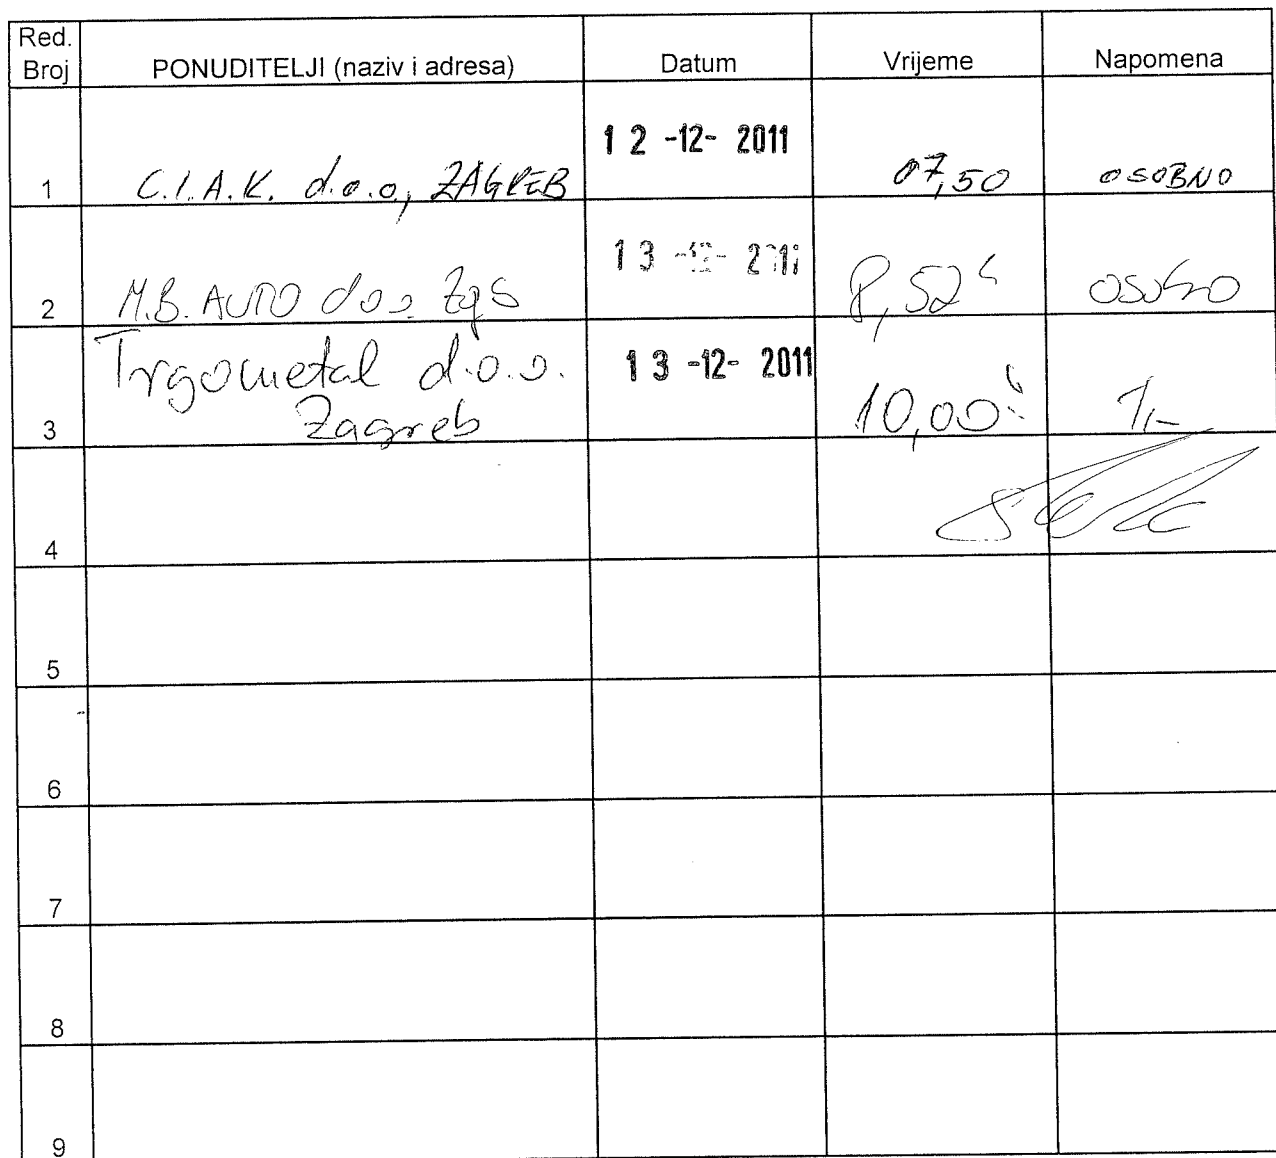 Red. Broj PONUDITELJI (naziv i adresa) Datum Vrijeme Napomena
1 C.I.A.K. d.o.o., ZAGREB 12 -12- 2011 07,50 OSOBNO
2 M.B. AUTO d.o.o. Zgb 13 -12- 2011 8,52 osobno
Trgometal d.o.o. 13 -12- 2011
3 Zagreb 10,00
4
5
6
7
8
9